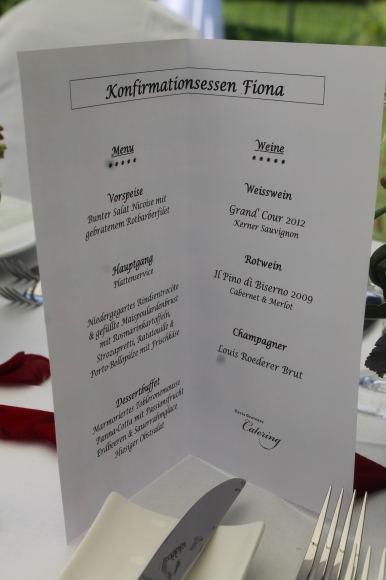 Konfirmationsessen Fiona
Menu
*****
Vorspeise
Bunter Salat Nicoise mit
gebratenem Rotbarberfilet
Hauptgang
Plattenservice
Niedergegartes Rindsentrecôte
& gefüllte Maispoulardenbrust
mit Rosmarinkartoffeln,
Strozapretti, Ratatouile &
Porto-Bellopilze mit Frischkäse
Dessertbuffet
Marmoriertes Tobleronemousse
Panna-Cotta mit Passionsfrucht
Erdbeeren & Sauerrahmglace
Hiesiger Obstsalat
Weine
*****
Weisswein
Grand' Cour 2012
Kerner Sauvignon
Rotwein
Il Pino di Biserno 2009
Cabernet & Merlot
Champagner
Louis Roederer Brut
Catering